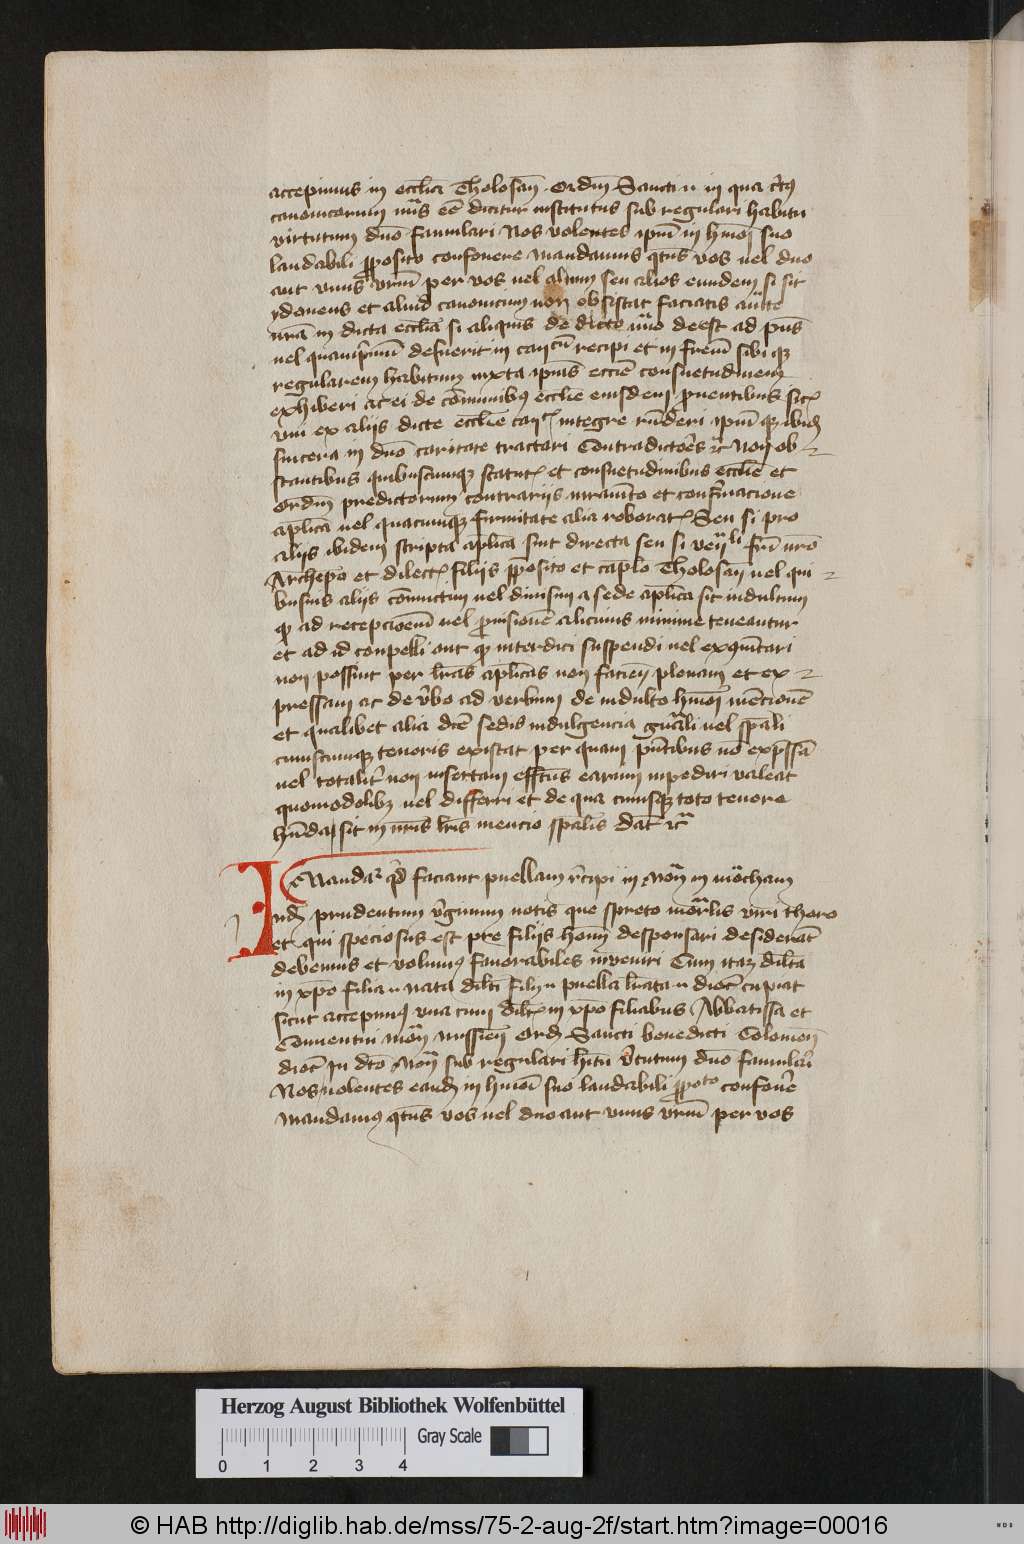 accepimus in ecclia Tholosan Ordin Sancti n in qua ctus
canonicorum nus eê dicitur institutus sub regulari habitu
virtutum dno famulari Nos volentes ipm in hmoi suo
laudabili pposito confovere mandamus qtus vos vel duo
aut unus vrm per vos vel alium seu alios eundem si sit
ydoneus et aliud canonicum non obsistat faciatis aucte
nra in dicta ecclia si aliquis de dicto nuo deest ad pns
vel quamprimum defuerit in can cum recipi et in frem sibi qz
regularem habitum iuxta ipius eccie consuetudinem
exhiberi ac ei de comunibus ecclie eiusdem pventibus sic
uni ex aliis dicte ecclie can integre rnderi ipm qz ibid
sincera in dno caritate tractari Contradictores zc Non ob
stantibus quibuscumqz statut et consuetudinibus ecclie et
Ordin predictorum contrariis iuramto et confirmacione
aplica vel quacumqz firmitate alia roborat Seu si pro
aliis ibidem scripta aplica sint directa seu si ven li fri nro
Archiepo et dilect filiis pposito et caplo Tholosan vel qui
busuis aliis coniunctim vel divisim a sede aplica sit indultum
q ad recepcoem vel provisione alicuius minime teneantur
et ad id conpelli aut q interdici suspendi vel excoicari
non possint per lras aplicas non facien plenam et ex
pressam ac de vbo ad verbum de indulto hmoi mencione
et qualibet alia dce sedis indulgencia gnali vel spali
cuiuscumqz tenoris existat per quam pntibus no expssa
vel totalit non insertam effctus earum impediri valeat
quomodolibz vel differri et de qua cuiusqz toto tenore
hnda sit in nris lris mencio spalis dat zc
Mandat q faciant puellam recipi in mon in mocham
Indz prudentum virginum votis que spreto mortalis viri thoro
et qui speciosus est pre filiis homi desponsari desiderat
debemus et volumus favorabiles inveniri Cum itaqz dilta
in xpo filia n nata dilti filii n puella lrata n dioc cupiat
sicut accepimus una cum dilt in xpo filiabus Abbatissa et
Conventu mon nussien Ord Sancti benedicti Colonien
dioc In dto mon sub regulari hitu virtutum dno famulari
Nos volentes eand in hmoi suo laudabili ppoto confovere
mandamus qtus vos vel duo aut unus vrm per vos
Herzog August Bibliothek Wolfenbüttel
Gray Scale
0 1 2 3 4
© HAB http://diglib.hab.de/mss/75-2-aug-2f/start.htm?image=00016